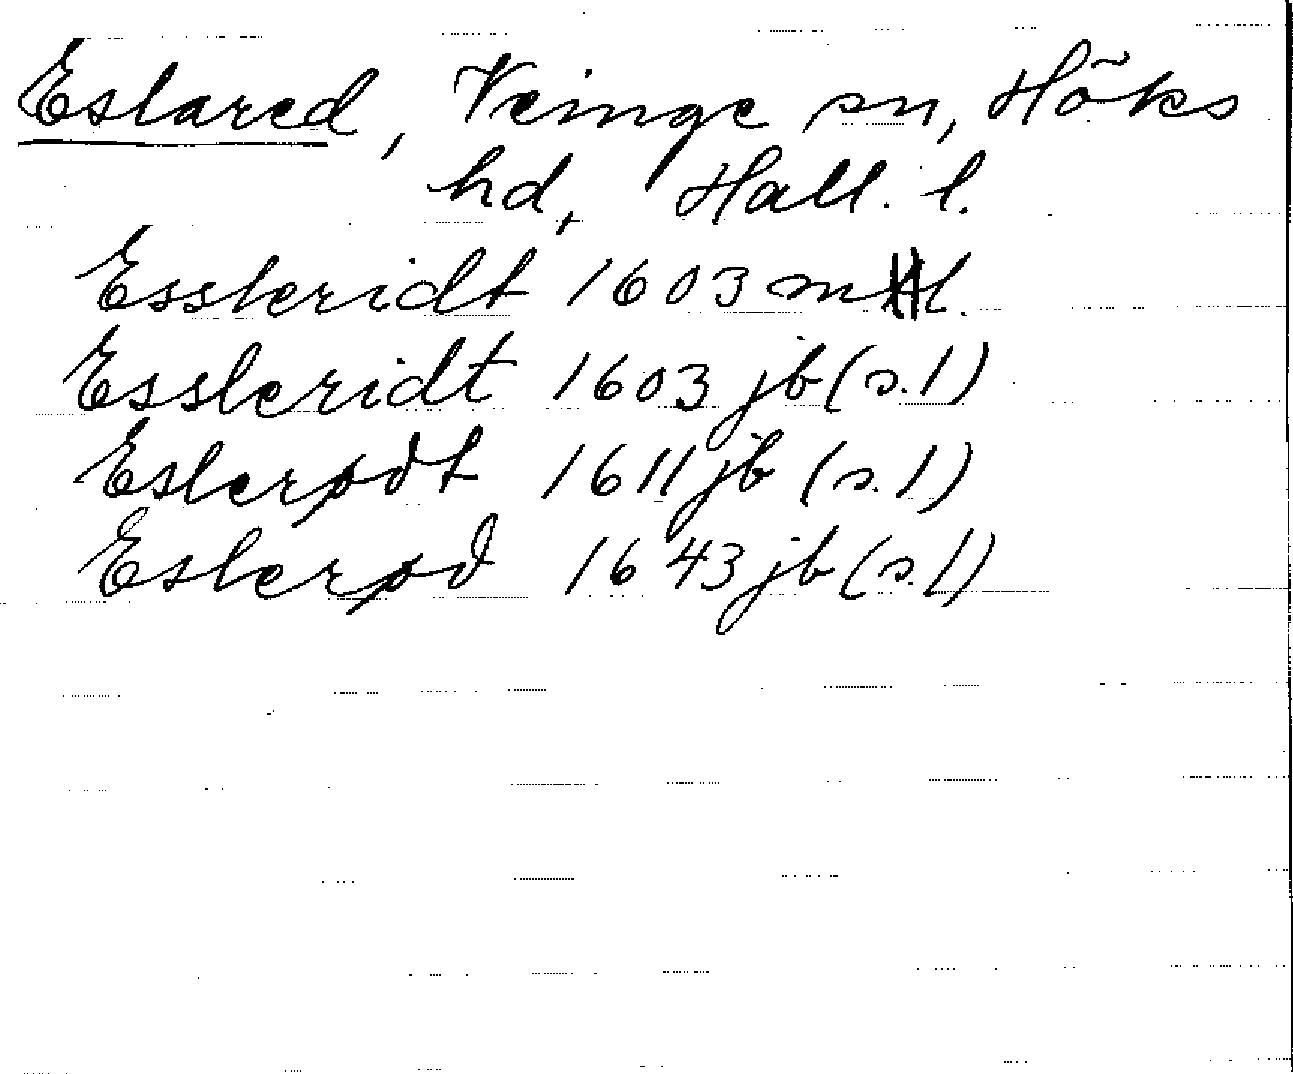 Eslared, Veinge sn, Höks
hd, Hall. l.
Essleridt 1603 mtl.
Essleridt 1603 jb (s.1)
Eslerødt 1611 jb (s.1)
Eslerød 1643 jb (s.1)